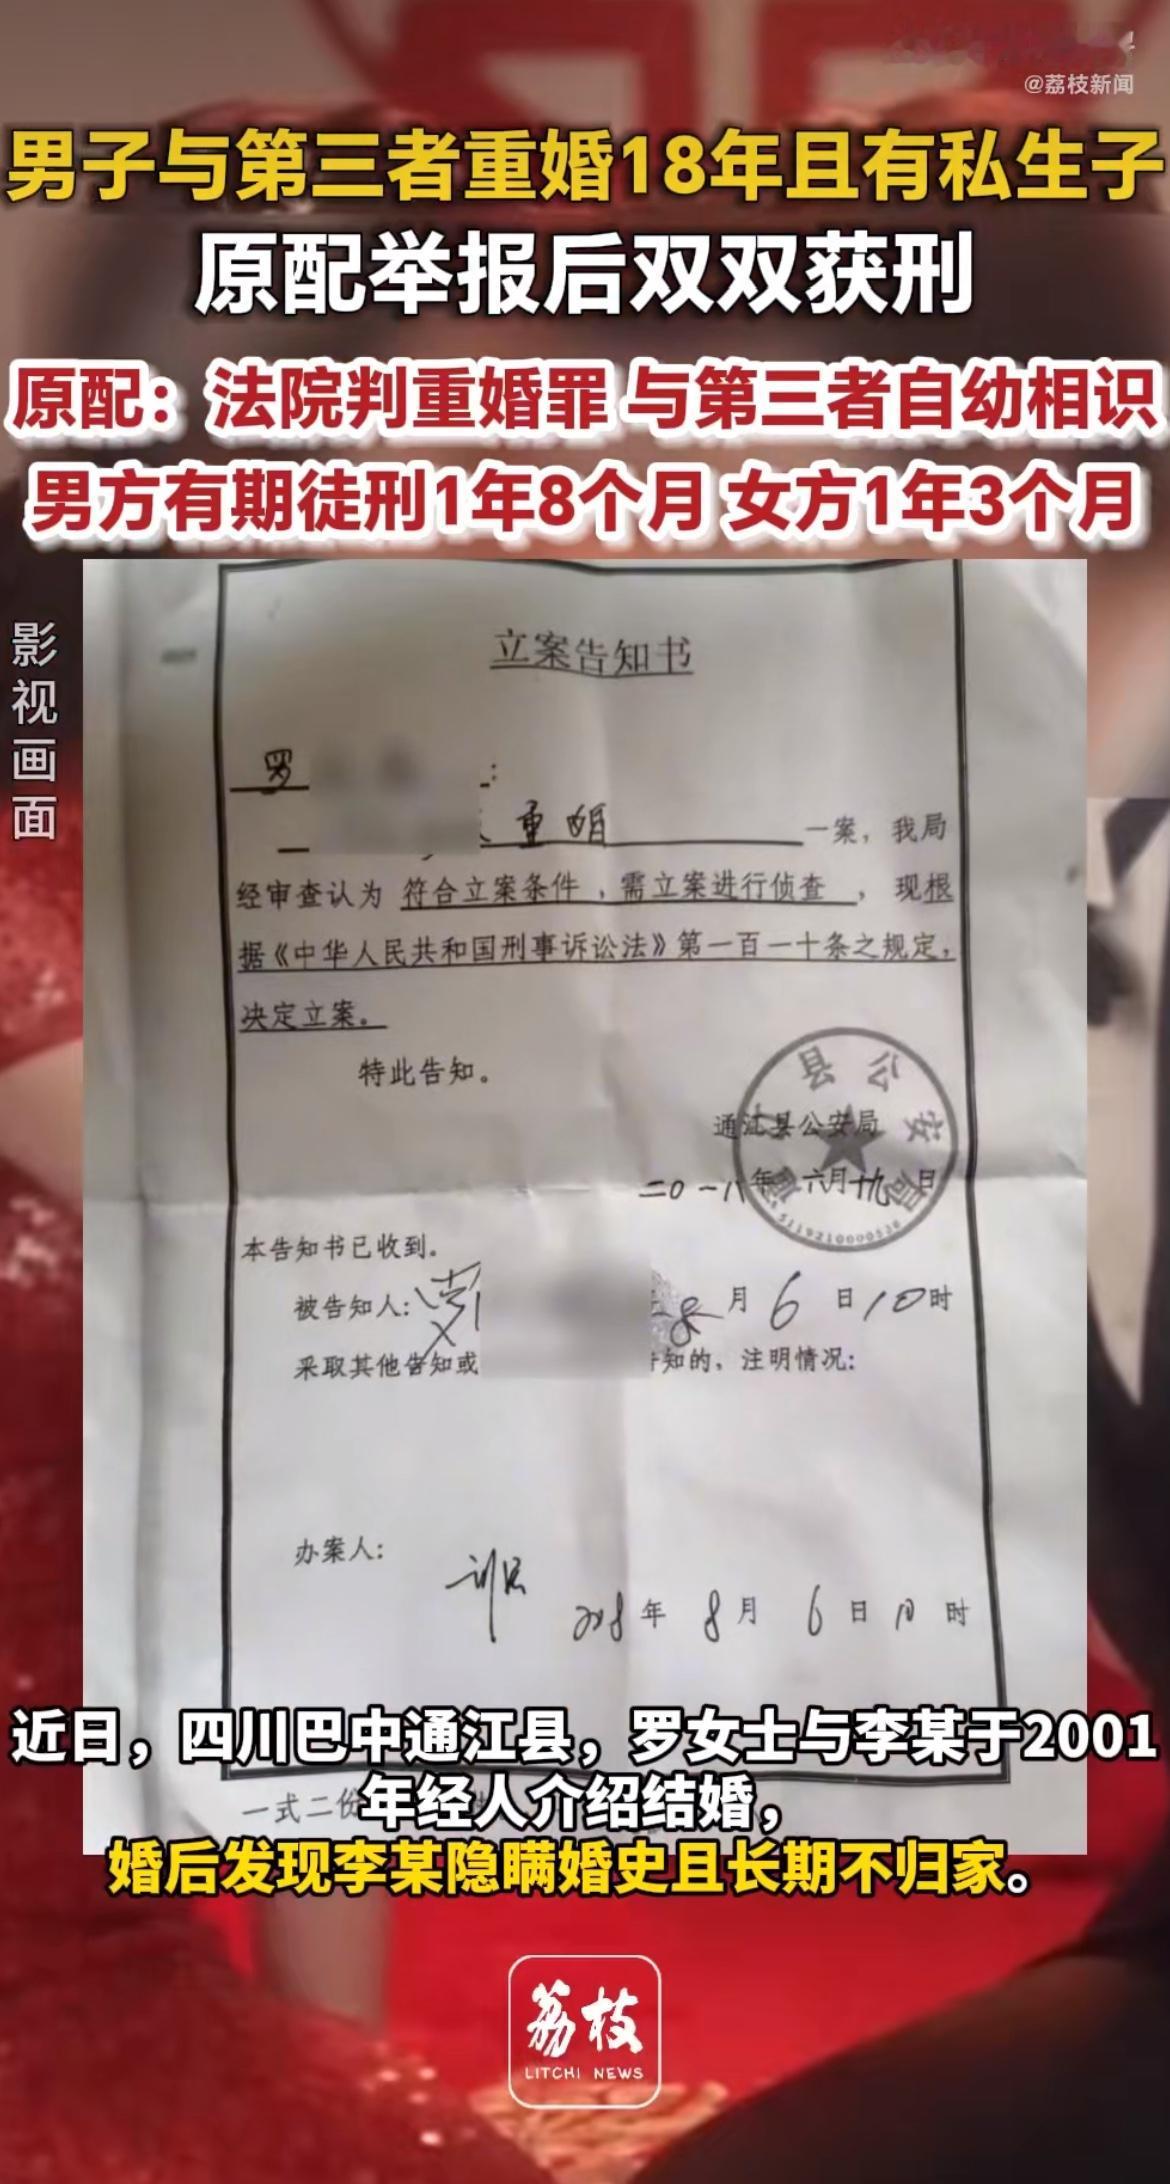 @荔枝新闻
男子与第三者重婚18年且有私生子
原配举报后双双获刑
原配：法院判重婚罪 与第三者自幼相识
男方有期徒刑1年8个月 女方1年3个月
影视画面
立案告知书
罗 :
重婚 一案，我局
经审查认为 符合立案条件，需立案进行侦查 ，现根
据《中华人民共和国刑事诉讼法》第一百一十条之规定，
决定立案。
特此告知。
县公安局
通江县公安局
二〇一八年六月十九日
5119210000526
本告知书已收到。
被告知人: 8月6日10时
采取其他告知或 告知的，注明情况:
办案人:
2018年8月6日10时
一式二份
近日，四川巴中通江县，罗女士与李某于2001
年经人介绍结婚，
婚后发现李某隐瞒婚史且长期不归家。
荔枝
LITCHI NEWS